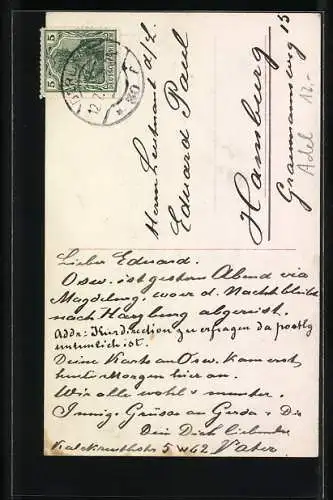 5 5
BERLIN
12.7.
* 30 f
Herrn Leutnant d/L.
Eduard Paul
Hamburg
Graumannsweg 15
Adel 12.-
Lieber Eduard.
Osw. ist gestern Abend via
Magdeburg, wo er d. Nacht bleibt
nach Harzburg abgereist.
Addr: Kurdirection zu erfragen da postlg
untunlich ist.
Deine Karte an Osw. kam erst
heute Morgen hier an.
Wir alle wohl & munter.
Innige Grüsse an Gerda & Dir
Dein Dich liebender
5 W62 Vater.